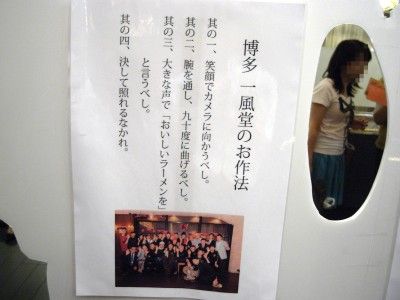 博多 一風堂のお作法
其の一、笑顔でカメラに向かうべし。
其の二、腕を通し、九十度に曲げるべし。
其の三、大きな声で「おいしいラーメンを」
と言うべし。
其の四、決して照れるなかれ。